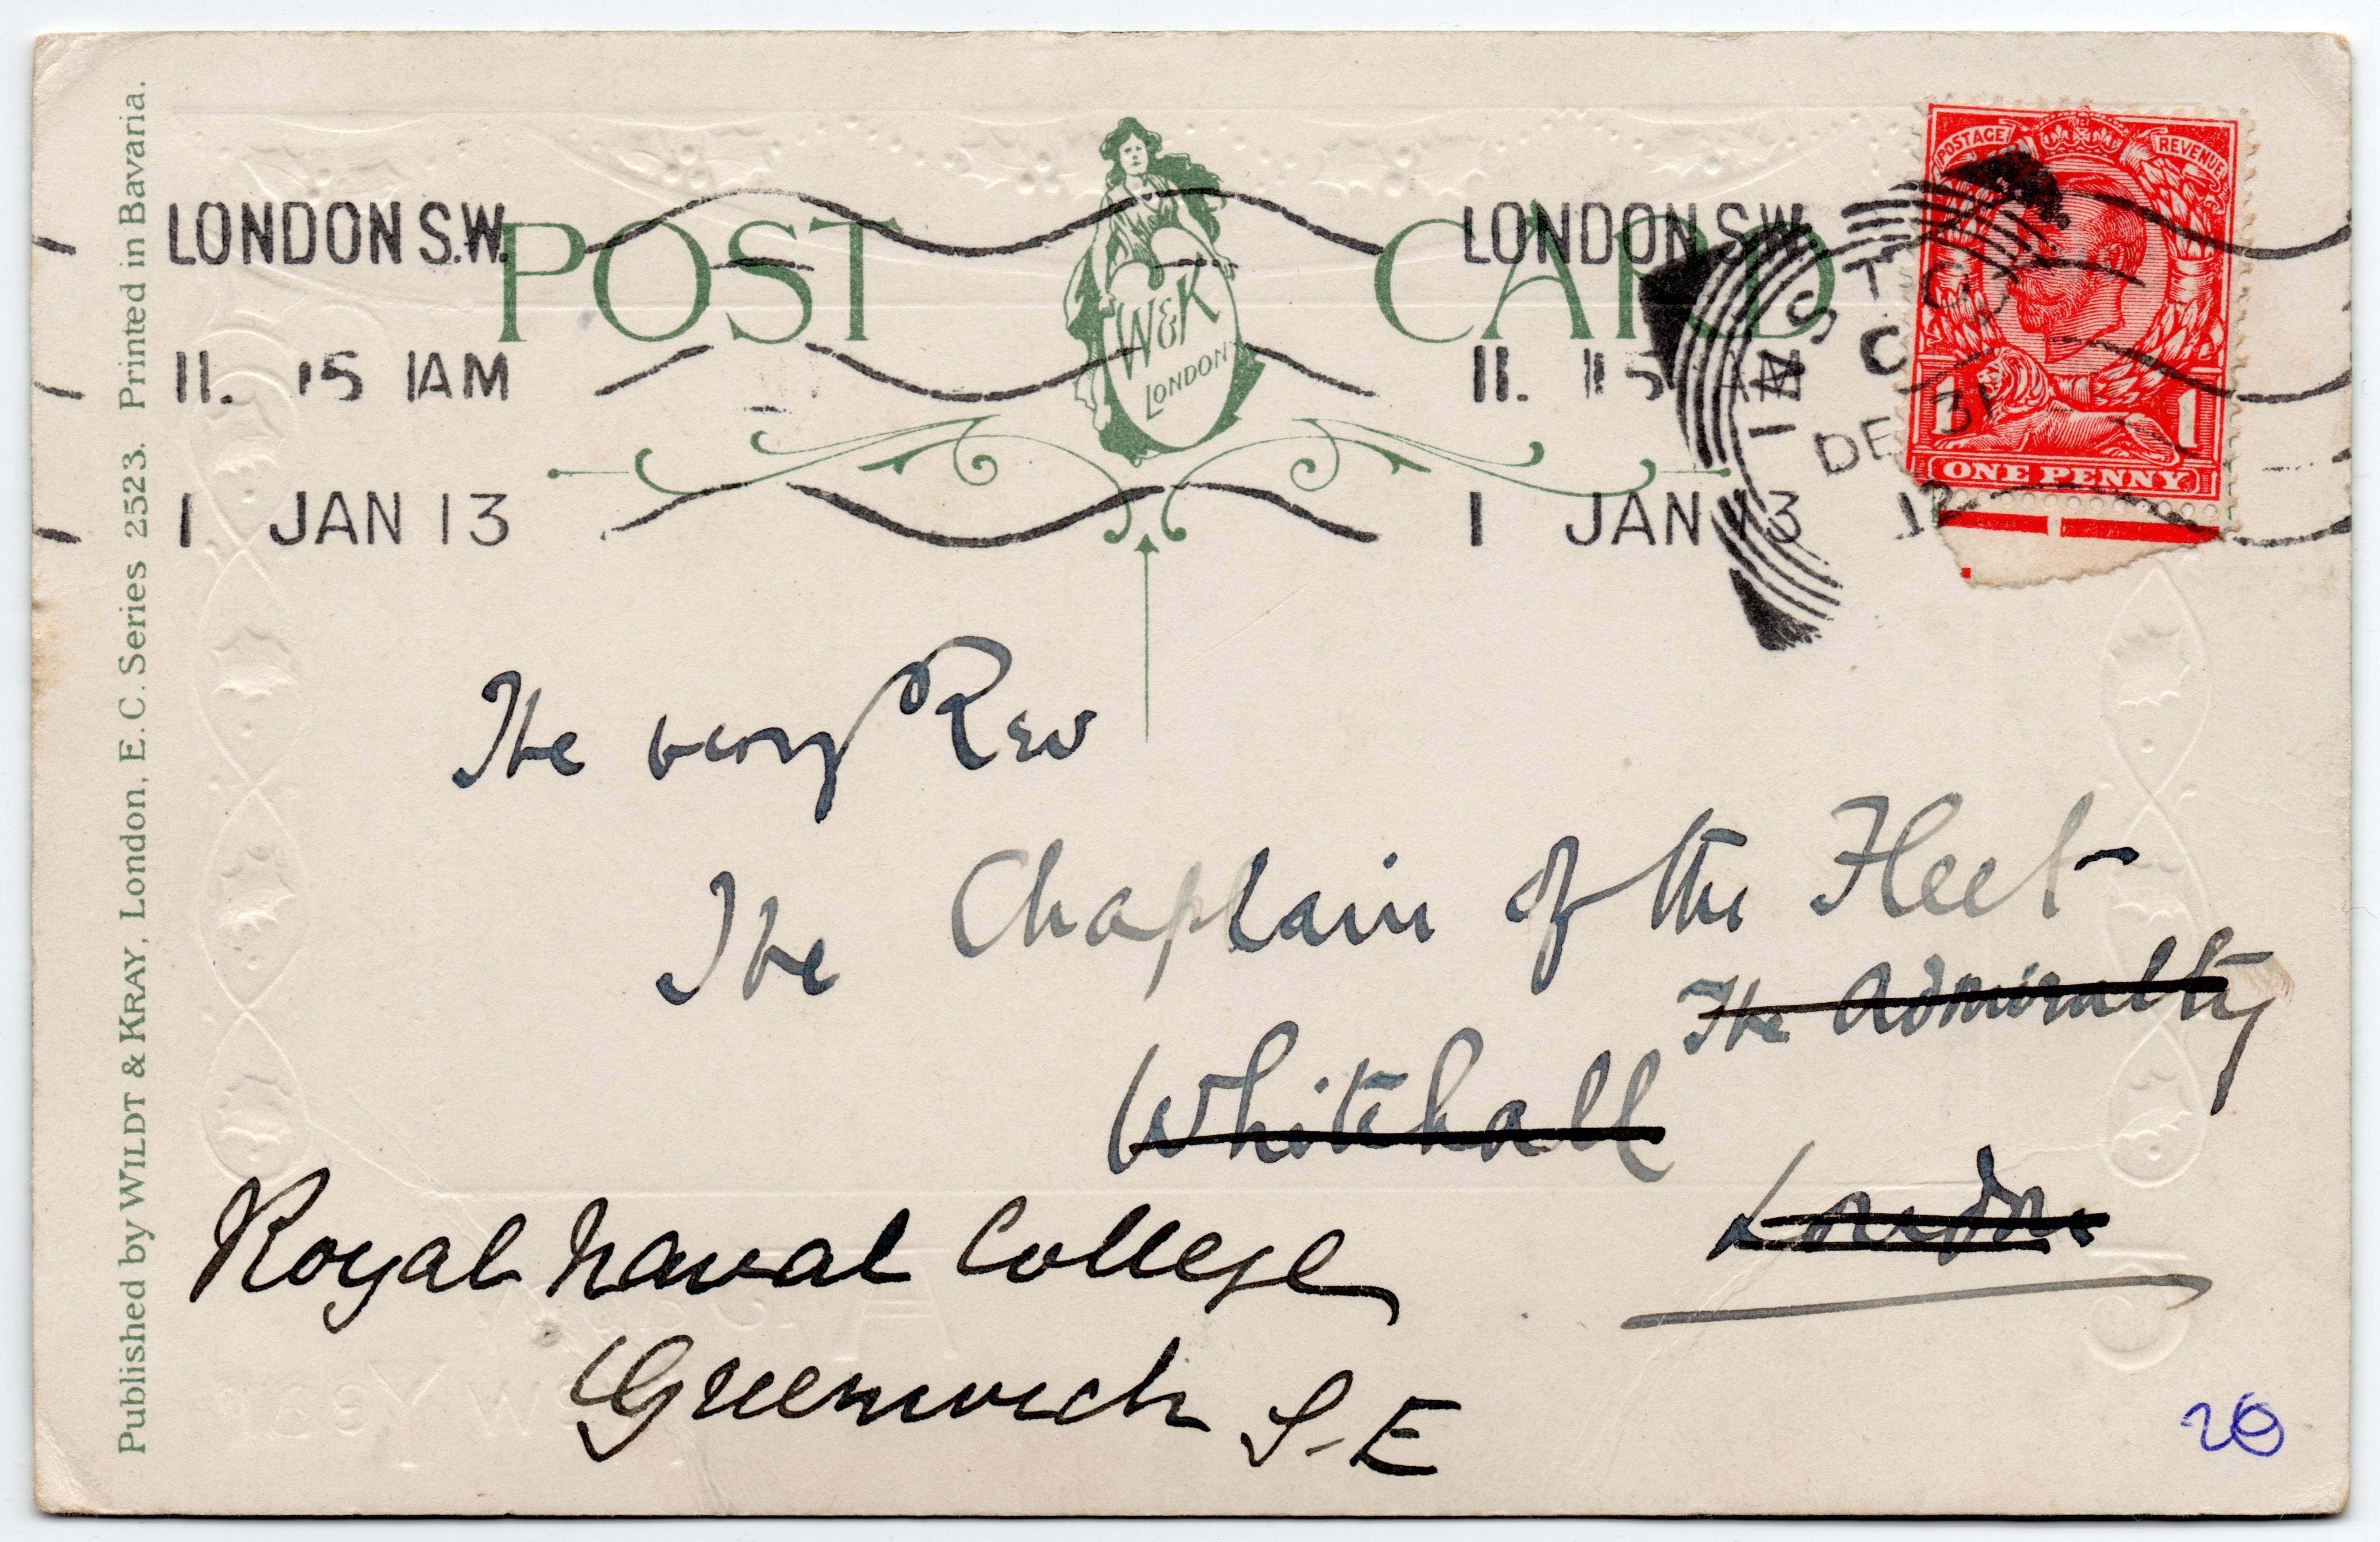 Published by WILDT & KRAY, London, E.C. Series 2523. Printed in Bavaria.
POST CARD
W&K
LONDON
LONDON S.W.
11. 15 AM
1 JAN 13
LONDON S.W.
11. 15 AM
1 JAN 13
DE 31
12
POSTAGE REVENUE
1 1
ONE PENNY
The very Rev
The Chaplain of the Fleet
The Admiralty
Whitehall
London
Royal Naval College
Greenwich S.E
20